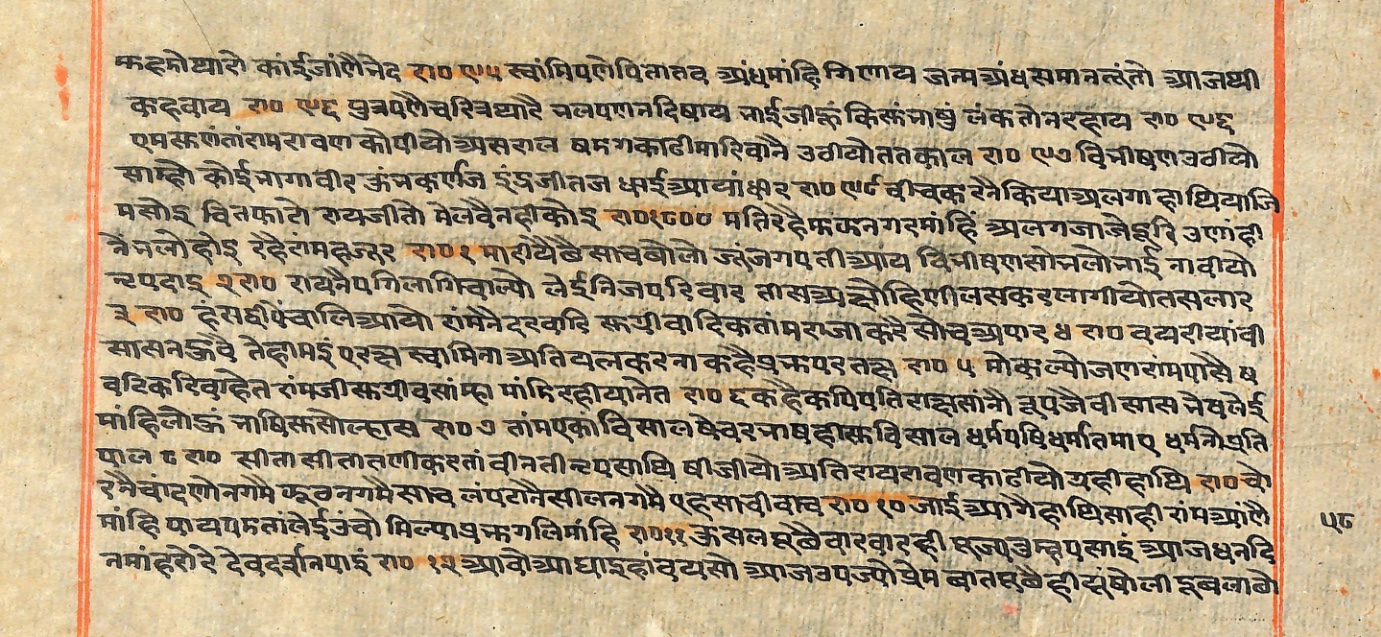 रुहमोथारो कांईजांणैनेद रा० ९५ स्वांमिपणेपितातव अंधमांहिगिणाय जन्मअंधसमानत्वंतो आजथी
कहवाय रा० ९६ पुत्रपणैचरित्रथारै नलपणनदिषाय नाईजीऊं किस्कंनाषुं लंकतोनरहाय रा० ९६
एमस्कणंतांरामरावण कोपीयोअसराल षडगकाढीमारिवानै उठीयोततकाल रा० ९७ विनीषणउठीयो
साम्हो कोईनागावीर कुंनकर्णजि इंद्रजीतज धाईआयांधीर रा० ९८ वीचकरनैकियाअलगा हाथियाजि
मसोइ वितफाटो रायजीतो मेलवैनहीकोइ रा०१८०० मतिरहैमऊनगरमांहिं अलगजाजेदूरि उणही
नैनलोहोइ रहैरांमहजूर रा० १ मारीयैबैसाचबोलो ज्जंजेगपतीआंय विनीषणसोनलोनाई नावीयो
न्टपदाइ २ रा० रायनैपगिलागिचाल्यो लेईनिजपरिवार तीसअक्षोहिणीलसकरलागीयोतसलार
३ रा० हंसद्वीपेंचालिआयो रांमनैदरबारि स्कग्रीवादिकतांमराजा करैसोचअपार ४ रा० वयरीयांवी
सासनऊवै तेहामइंएरक्ष स्वामिना अतियलकरना कहैप्रऊपरतक्ष रा० ५ मोकल्योजणरांमपासै ष
बरिकरिवाहेत रांमजीस्कग्रीवसांम्हा मांडिरहीयानेत रा० ६ कहैकपिपतिराक्षसांनौ नूपजैवीसास नेषलेई
मांहिलौऊं नाषिस्कसोल्हास रा० ७ तांमएकोविसालषेचर नाषहीस्कविसाल धर्मपषिधर्मातमाए धर्मनोप्रति
पाल ८ रा० सीतासीतातणीकरतां वीनतीन्टपसाथि षीजीयोअतिरायरावण काढीयोग्रहीहाथि रा० चो
रनैचांदणोनगमै फूठनगमैसाच लंपटानैसीलनगमै एहसाचीवाच रा० १० जाईआगैहाथिसाही रांमआंणै
मांहि पायपडतांलेईउंचो मिल्याप्रऊगलिमांहि रा०११ कुसलपूछैवारवारही पूज्यतुम्हपसाइं आजधनदि
नमांहरोरे देवदर्सनपाइं रा० १२ आवोआघाइहांवयसो आजउपज्योप्रेम बातपूछैहीसूंषोली दूबलाछो
५८